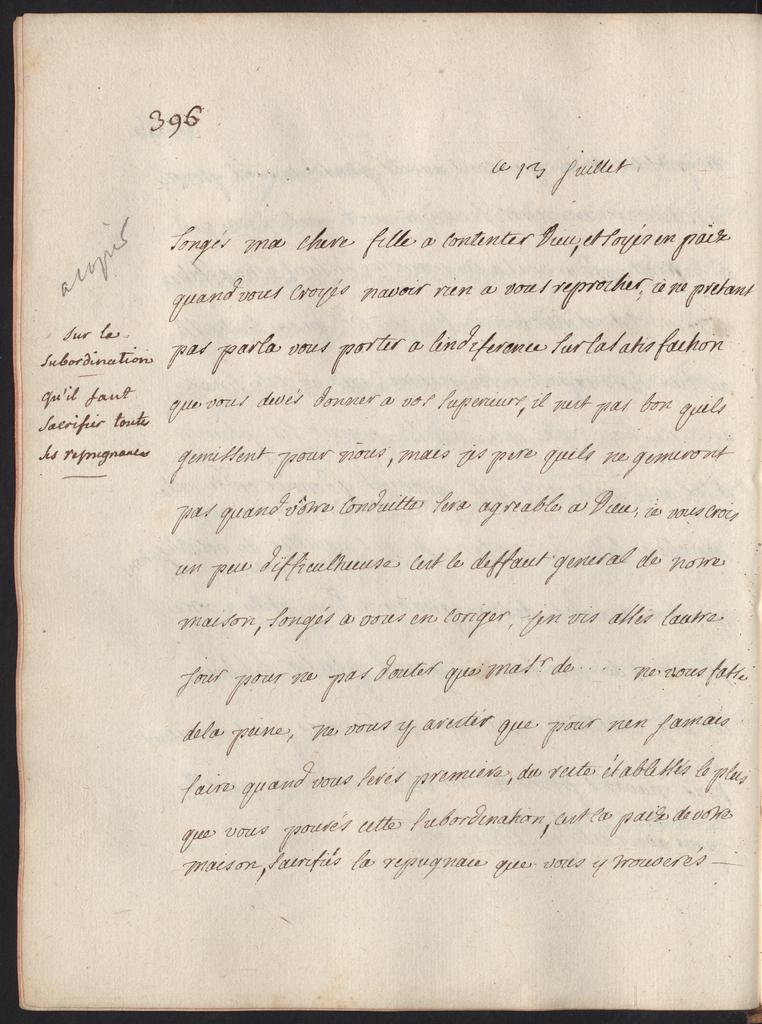 396
ce 13 juillet
Songés ma chere fille a contenter Dieu, et soyés en paix
quand vous croyés navoir rien a vous reprocher, ie ne pretant
pas parla vous porter a lindiference sur la satisfaction
que vous devés donner a vos superieurs, il nest pas bon quils
gemissent pour nous, mais jespere quils ne gemiront
pas quand vôtre conduitte sera agreable a Dieu, ie vous crois
un peu difficultueuse cest le deffaut general de notre
maison, songés a vous en coriger, jen vis assés lautre
jour pour ne pas douter que mad.r de .... ne vous fasse
dela peine, ne vous y arester que pour nen jamais
faire quand vous serés premiere, du reste établissés le plus
que vous pourés cette subordination, cest la paix de votre
maison, sacrifiés la repugnace que vous y trouverés —
acopié
sur la
subordination
qu'il faut
sacrifier toute
ses repugnances